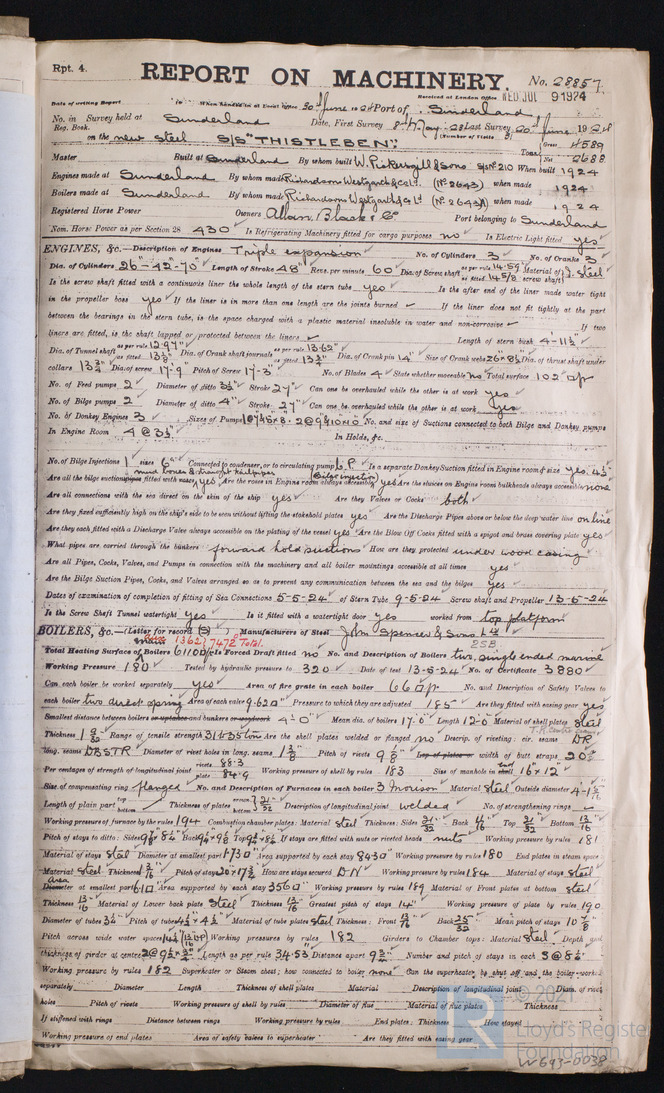 Rpt. 4.
REPORT ON MACHINERY. No. 28857
Received at London Office WED. JUL 9 1924
Date of writing Report 19 When handed in at Local Office 30 June 1924 Port of Sunderland
No. in Survey held at Sunderland Date, First Survey 8th May. 23 Last Survey 20th June 1924
Reg. Book. (Number of Visits
on the new steel S/S "THISTLEBEN" Tons Gross 4589 Net 2688
Master Built at Sunderland By whom built W. Pickersgill & Sons S/S No 210 When built 1924
Engines made at Sunderland By whom made Richardsons Westgarth & Co Ld (No 2643) when made 1924
Boilers made at Sunderland By whom made Richardsons Westgarth & Co Ld (No 2643) when made 1924
Registered Horse Power Owners Allan, Black & Co Port belonging to Sunderland
Nom. Horse Power as per Section 28 430 Is Refrigerating Machinery fitted for cargo purposes no Is Electric Light fitted yes
ENGINES, &c.—Description of Engines Triple expansion No. of Cylinders 3 No. of Cranks 3
Dia. of Cylinders 26"-42"-70" Length of Stroke 48" Revs. per minute 60 Dia. of Screw shaft as per rule 14.59 as fitted 14 5/8 Material of screw shaft I. Steel
Is the screw shaft fitted with a continuous liner the whole length of the stern tube yes Is the after end of the liner made water tight
in the propeller boss yes If the liner is in more than one length are the joints burned If the liner does not fit tightly at the part
between the bearings in the stern tube, is the space charged with a plastic material insoluble in water and non-corrosive If two
liners are fitted, is the shaft lapped or protected between the liners Length of stern bush 4'-11 1/2"
Dia. of Tunnel shaft as per rule 12.97" as fitted 13 3/8 Dia. of Crank shaft journals as per rule 13.62" as fitted 13 3/4" Dia. of Crank pin 14" Size of Crank webs 26" x 8 3/4 Dia. of thrust shaft under
collars 13 3/4" Dia. of screw 17'-9" Pitch of Screw 17'-3" No. of Blades 4 State whether moveable no Total surface 102
No. of Feed pumps 2 Diameter of ditto 3 1/2" Stroke 27" Can one be overhauled while the other is at work yes
No. of Bilge pumps 2 Diameter of ditto 4" Stroke 27" Can one be overhauled while the other is at work yes
No. of Donkey Engines 3 Sizes of Pumps No. and size of Suctions connected to both Bilge and Donkey pumps
In Engine Room 4 @ 3 1/2" In Holds, &c.
No. of Bilge Injections 1 sizes 6" Connected to condenser, or to circulating pump C.P. Is a separate Donkey Suction fitted in Engine room & size yes. 4 1/2"
Are all the bilge suction pipes fitted with roses yes Are the roses in Engine room always accessible yes Are the sluices on Engine room bulkheads always accessible none
Are all connections with the sea direct on the skin of the ship yes Are they Valves or Cocks both
Are they fixed sufficiently high on the ship's side to be seen without lifting the stokehold plates yes Are the Discharge Pipes above or below the deep water line on line
Are they each fitted with a Discharge Valve always accessible on the plating of the vessel yes Are the Blow Off Cocks fitted with a spigot and brass covering plate yes
What pipes are carried through the bunkers forward hold suctions How are they protected under wood casing
Are all Pipes, Cocks, Valves, and Pumps in connection with the machinery and all boiler mountings accessible at all times yes
Are the Bilge Suction Pipes, Cocks, and Valves arranged so as to prevent any communication between the sea and the bilges yes
Dates of examination of completion of fitting of Sea Connections 5-5-24 of Stern Tube 9-5-24 Screw shaft and Propeller 13-5-24
Is the Screw Shaft Tunnel watertight yes Is it fitted with a watertight door yes worked from top platform
BOILERS, &c.—(Letter for record (S)) Manufacturers of Steel John Spencer & Sons Ld
1362 7472 Total. 2SB
Total Heating Surface of Boilers 6110 Is Forced Draft fitted no No. and Description of Boilers two, single ended marine
Working Pressure 180 Tested by hydraulic pressure to 320 Date of test 13-5-24 No. of Certificate 3880
Can each boiler be worked separately yes Area of fire grate in each boiler 66 No. and Description of Safety Valves to
each boiler two direct spring Area of each valve 9.620" Pressure to which they are adjusted 185 Are they fitted with easing gear yes
Smallest distance between boilers or uptakes and bunkers or woodwork 4'-0" Mean dia. of boilers 17'-0" Length 12'-0" Material of shell plates Steel
Thickness 1 9/32 Range of tensile strength 31 & 35 tons Are the shell plates welded or flanged no Descrip. of riveting: cir. seams DR
long. seams DBSTR Diameter of rivet holes in long. seams 1 3/8" Pitch of rivets 9 5/8" Lap of plates or width of butt straps 20
Per centages of strength of longitudinal joint rivets 88.3 plate 84.9 Working pressure of shell by rules 183 Size of manhole in shell 16" x 12"
Size of compensating ring flanged No. and Description of Furnaces in each boiler 3 Morison Material Steel Outside diameter
Length of plain part top bottom Thickness of plates crown bottom 21/32 Description of longitudinal joint welded No. of strengthening rings
Working pressure of furnace by the rules 194 Combustion chamber plates: Material Steel Thickness: Sides 21/32 Back 11/16 Top 21/32 Bottom 13/16
Pitch of stays to ditto: Sides Back Top If stays are fitted with nuts or riveted heads nuts Working pressure by rules 181
Material of stays Steel Diameter at smallest part 1.730" Area supported by each stay 8430" Working pressure by rules 180 End plates in steam space
Material Steel Thickness Pitch of stays 20" x 17 3/4" How are stays secured DN Working pressure by rules 184 Material of stays Steel
Area
Diameter at smallest part Area supported by each stay 3560" Working pressure by rules 189 Material of Front plates at bottom Steel
Thickness 13/16 Material of Lower back plate Steel Thickness 13/16 Greatest pitch of stays 14" Working pressure of plate by rules 190
Diameter of tubes 3 1/4" Pitch of tubes 4 1/2" x 4 1/2" Material of tube plates Steel Thickness: Front 13/16 Back 25/32 Mean pitch of stays 10 7/8
Pitch across wide water spaces 14 1/2" Working pressures by rules 182 Girders to Chamber tops: Material Steel Depth and
thickness of girder at centre Length as per rule 34.53 Distance apart 9 3/4" Number and pitch of stays in each 3 @ 8 1/4"
Working pressure by rules 182 Superheater or Steam chest; how connected to boiler none Can the superheater be shut off and the boiler worked
separately Diameter Length Thickness of shell plates Material Description of longitudinal joint Diam. of rivet
holes Pitch of rivets Working pressure of shell by rules Diameter of flue Material of flue plates Thickness
If stiffened with rings Distance between rings Working pressure by rules End plates: Thickness How stayed
Working pressure of end plates Area of safety valves to superheater Are they fitted with easing gear
© 2021
Lloyd's Register
Foundation
W693-0038